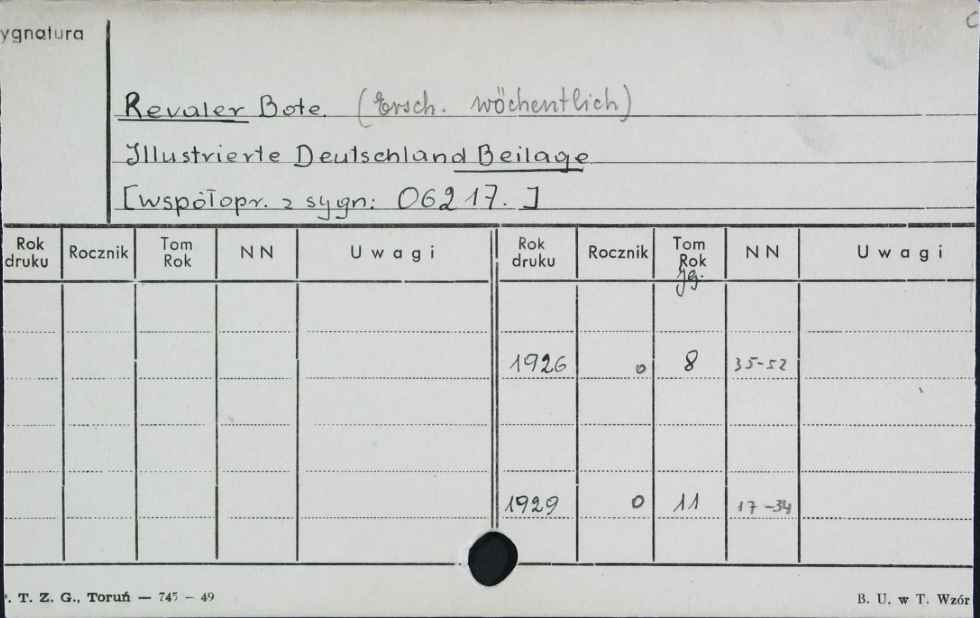 ygnatura
Revaler Bote. (Ersch. wöchentlich)
Illustrierte Deutschland Beilage
[współopr. z sygn: 06217.]
Rok druku Rocznik Tom Rok NN Uwagi Rok druku Rocznik Tom Rok NN Uwagi
Jg.
1926 0 8 35-52
1929 0 11 17-34
. T. Z. G., Toruń — 745 — 49 B. U. w T. Wzór